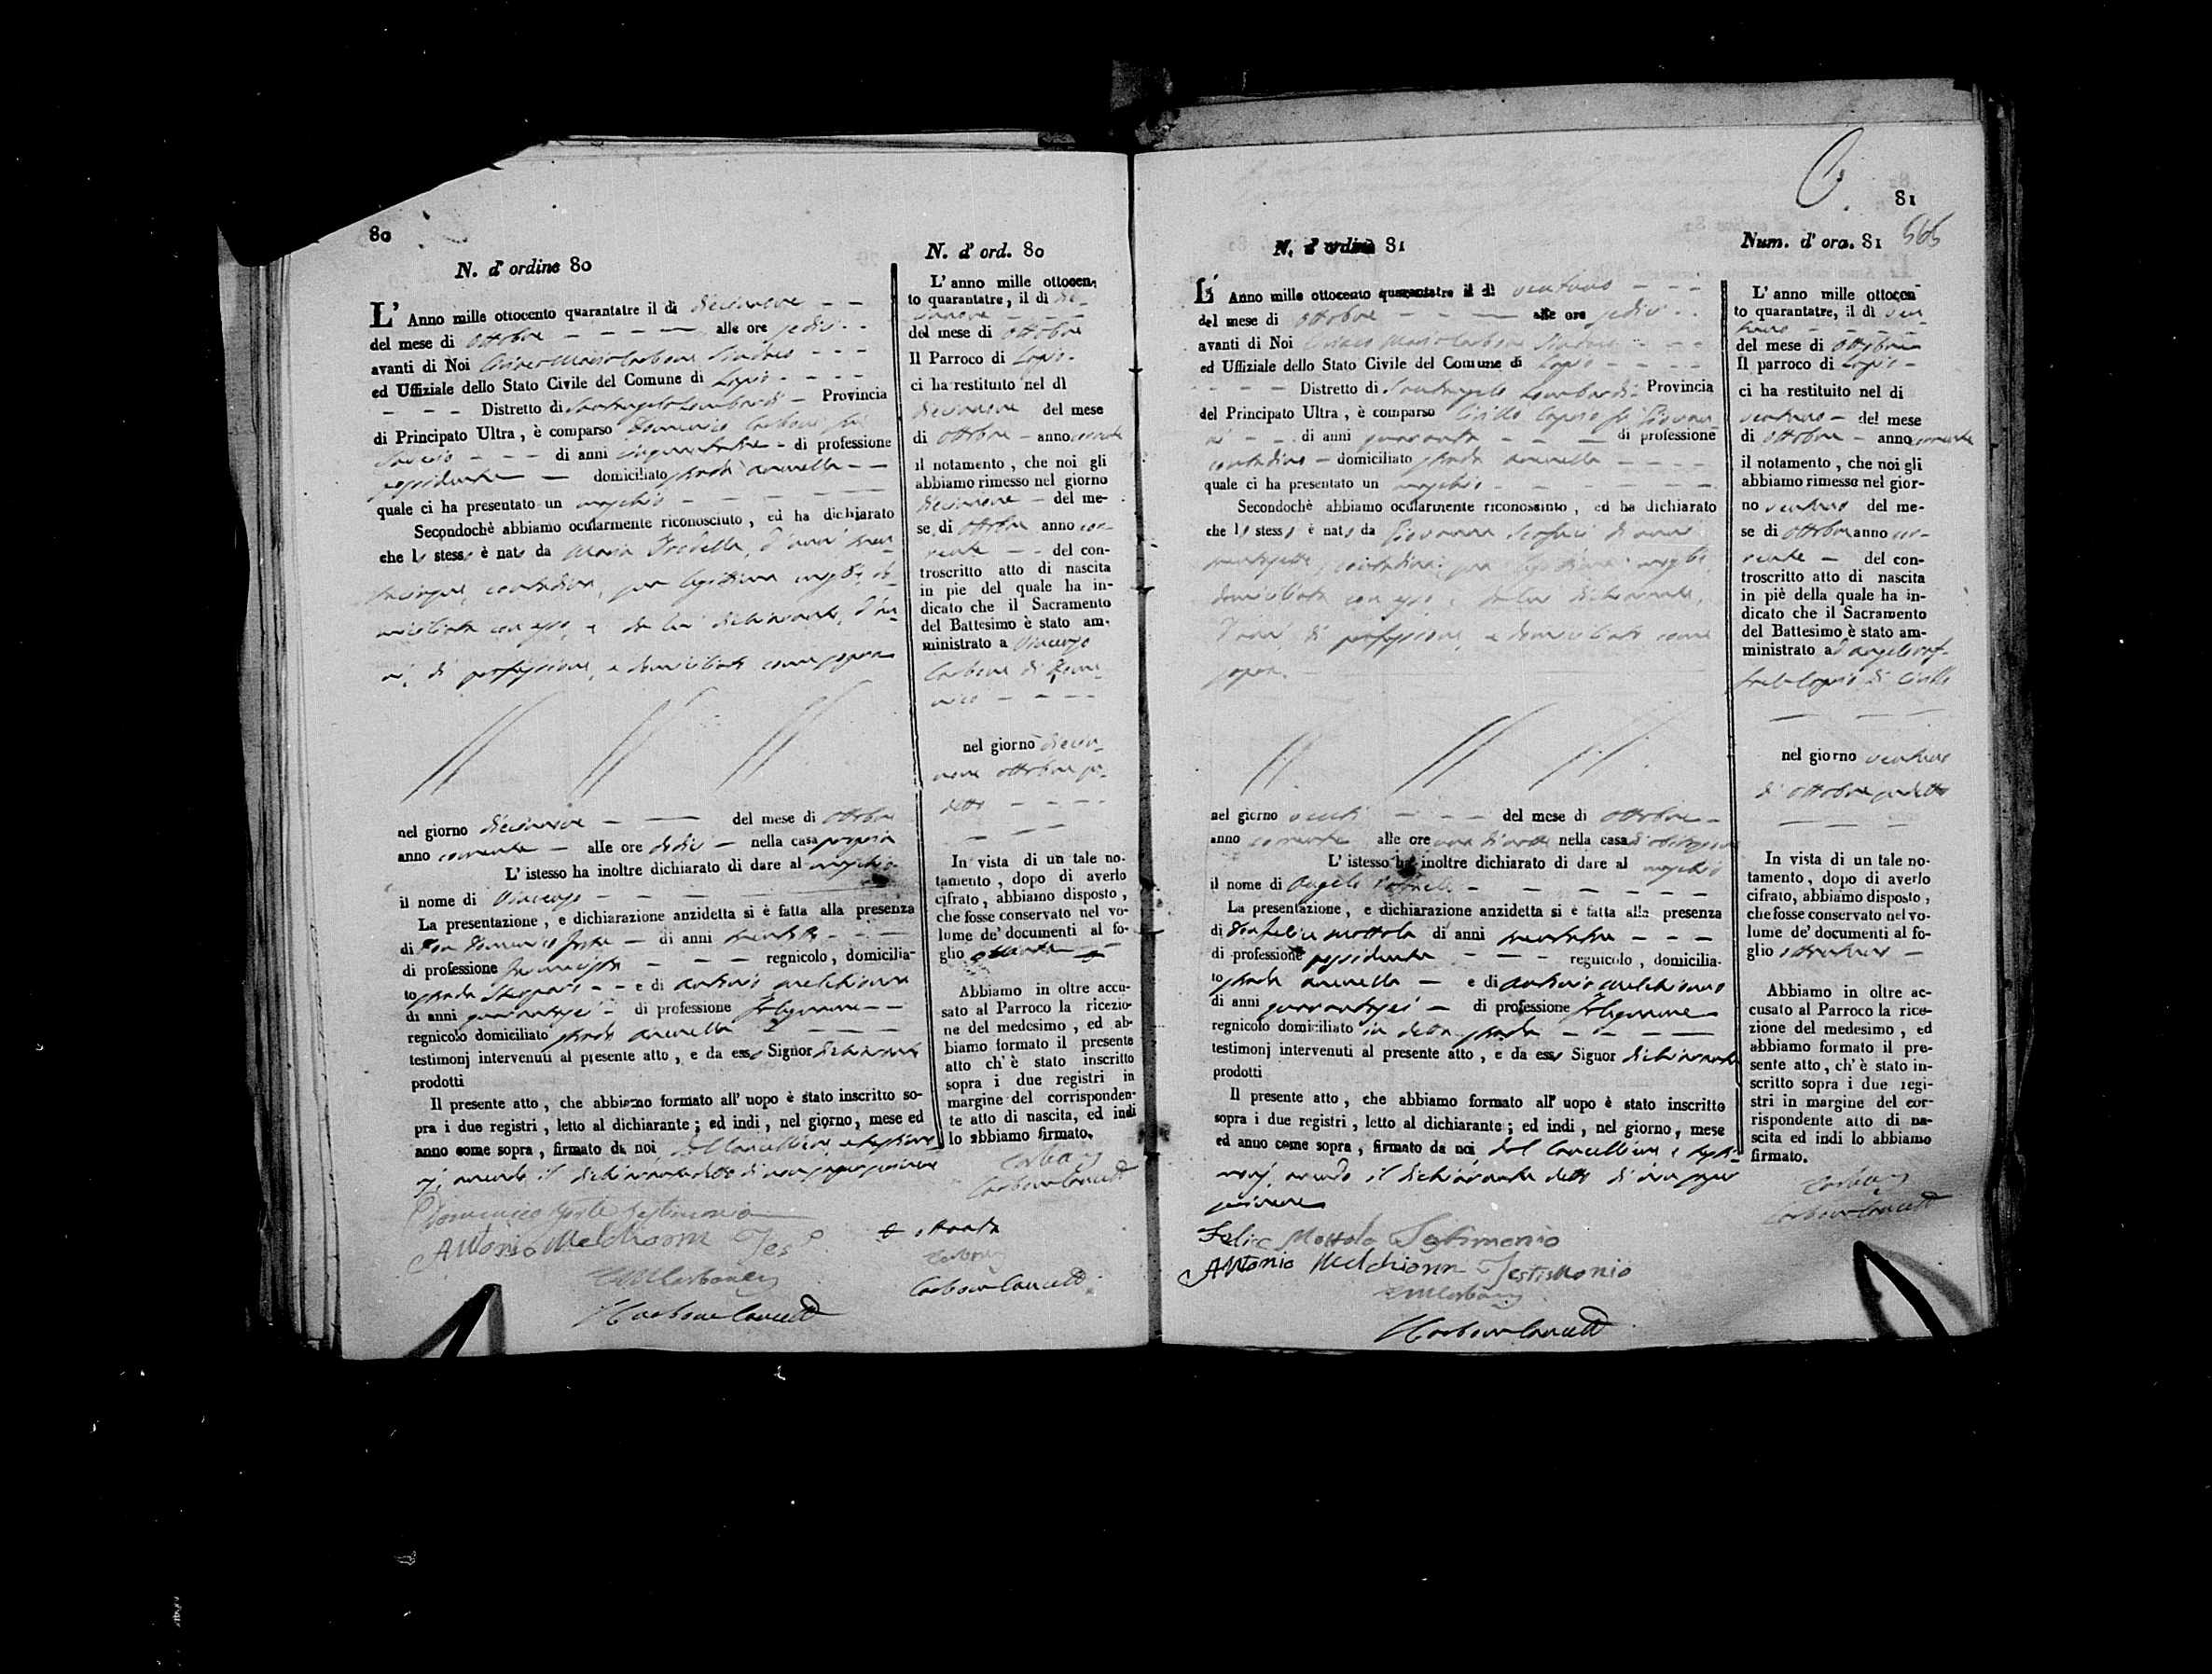 80
N. d' ordine 80
L' Anno mille ottocento quarantatre il dì diecinove
del mese di Ottobre alle ore sedici
avanti di Noi Carbone Sindaco
ed Uffiziale dello Stato Civile del Comune di Lapio
Distretto di Santangelo Lombardi Provincia
di Principato Ultra, è comparso Domenico Carbone fu
di anni cinquantatre di professione
possidente domiciliato strada
quale ci ha presentato un maschio
Secondochè abbiamo ocularmente riconosciuto, ed ha dichiarato
che lo stesso è nato da Maria d'anni tren-
tacinque, contadina, sua legittima moglie, do-
miciliata con esso, e da lui dichiarante, d'an-
ni, di professione, e domiciliato come sopra
nel giorno diecinove del mese di Ottobre
anno corrente alle ore dodici nella casa propria
L' istesso ha inoltre dichiarato di dare al maschio
il nome di Vincenzo
La presentazione, e dichiarazione anzidetta si è fatta alla presenza
di Don Domenico Forte di anni
di professione regnicolo, domicilia-
to strada e di Antonio Melchionna
di anni quarantasei di professione Falegname
regnicolo domiciliato strada
testimonj intervenuti al presente atto, e da esso Signor dichiarante
prodotti
Il presente atto, che abbiamo formato all' uopo è stato inscritto so-
pra i due registri, letto al dichiarante; ed indi, nel giorno, mese ed
anno come sopra, firmato da noi, dal Cancelliere, e testimo-
nj, avendo il dichiarante detto di non saper scrivere
Domenico Forte Testimonio
Antonio Melchionna Tes
Carbone Cancell
N. d' ord. 80
L' anno mille ottocen-
to quarantatre, il dì die-
cinove
del mese di Ottobre
Il Parroco di Lapio
ci ha restituito nel dì
diecinove del mese
di Ottobre anno corrente
il notamento, che noi gli
abbiamo rimesso nel giorno
diecinove del me-
se di Ottobre anno cor-
rente del con-
troscritto atto di nascita
in pie del quale ha in-
dicato che il Sacramento
del Battesimo è stato am-
ministrato a Vincenzo
Carbone di Dome-
nico
nel giorno dieci-
nove Ottobre su-
detto
In vista di un tale no-
tamento, dopo di averlo
cifrato, abbiamo disposto,
che fosse conservato nel vo-
lume de' documenti al fo-
glio ottanta
Abbiamo in oltre accu-
sato al Parroco la ricezio-
ne del medesimo, ed ab-
biamo formato il presente
atto ch' è stato inscritto
sopra i due registri in
margine del corrisponden-
te atto di nascita, ed indi
lo abbiamo firmato.
Carbone
Carbone Cancell
ottanta
Carbone
Carbone Cancell
81
565
N. d' ordine 81
L' Anno mille ottocento quarantatre il dì ventuno
del mese di Ottobre alle ore sedici
avanti di Noi Carbone Sindaco
ed Uffiziale dello Stato Civile del Comune di Lapio
Distretto di Santangelo Lombardi Provincia
del Principato Ultra, è comparso Cirillo Caputo fu Giovan-
ni di anni quaranta di professione
contadino domiciliato strada
quale ci ha presentato un maschio
Secondochè abbiamo ocularmente riconosciuto, ed ha dichiarato
che lo stesso è nato da Giovanna di anni
trentasette, contadina sua legittima moglie,
domiciliata con esso, e da lui dichiarante,
d'anni, di professione, e domiciliato come
sopra.
nel giorno venti del mese di Ottobre
anno corrente alle ore una di notte nella casa di abitazione
L' istesso ha inoltre dichiarato di dare al maschio
il nome di Angelo Raffaele
La presentazione, e dichiarazione anzidetta si è fatta alla presenza
di Don Felice Mottola di anni trentatre
di professione possidente regnicolo, domicilia-
to strada e di Antonio Melchionna
di anni quarantasei di professione Falegname
regnicolo domiciliato in detta strada
testimonj intervenuti al presente atto, e da esso Signor dichiarante
prodotti
Il presente atto, che abbiamo formato all' uopo è stato inscritto
sopra i due registri, letto al dichiarante; ed indi, nel giorno, mese
ed anno come sopra, firmato da noi, dal Cancelliere e testi-
monj, avendo il dichiarante detto di non saper
scrivere
Felice Mottola Testimonio
Antonio Melchionna Testimonio
Carbone Cancell
Num. d' ord. 81
L' anno mille ottocen
to quarantatre, il dì ven
tuno
del mese di Ottobre
Il parroco di Lapio
ci ha restituito nel di
ventuno del mese
di Ottobre anno corrente
il notamento, che noi gli
abbiamo rimesso nel gior-
no ventuno del me-
se di Ottobre anno cor-
rente del con-
troscritto atto di nascita
in piè della quale ha in-
dicato che il Sacramento
del Battesimo è stato am-
ministrato ad Angelo Raf-
faele Caputo di Cirillo
nel giorno ventuno
di Ottobre sudetto
In vista di un tale no-
tamento, dopo di averlo
cifrato, abbiamo disposto,
che fosse conservato nel vo-
lume de' documenti al fo-
glio ottantuno
Abbiamo in oltre ac-
cusato al Parroco la rice-
zione del medesimo, ed
abbiamo formato il pre-
sente atto, ch' è stato in-
scritto sopra i due regi-
stri in margine del cor-
rispondente atto di na-
scita ed indi lo abbiamo
firmato.
Carbone
Carbone Cancell